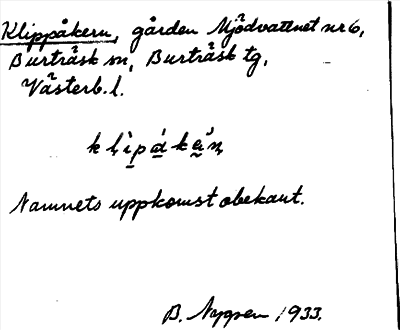 Klippåkern, gården Mjödvattnet nr 6,
Burträsk sn, Burträsk tg,
Västerb. l.
Namnets uppkomst obekant.
B. Nygren 1933.